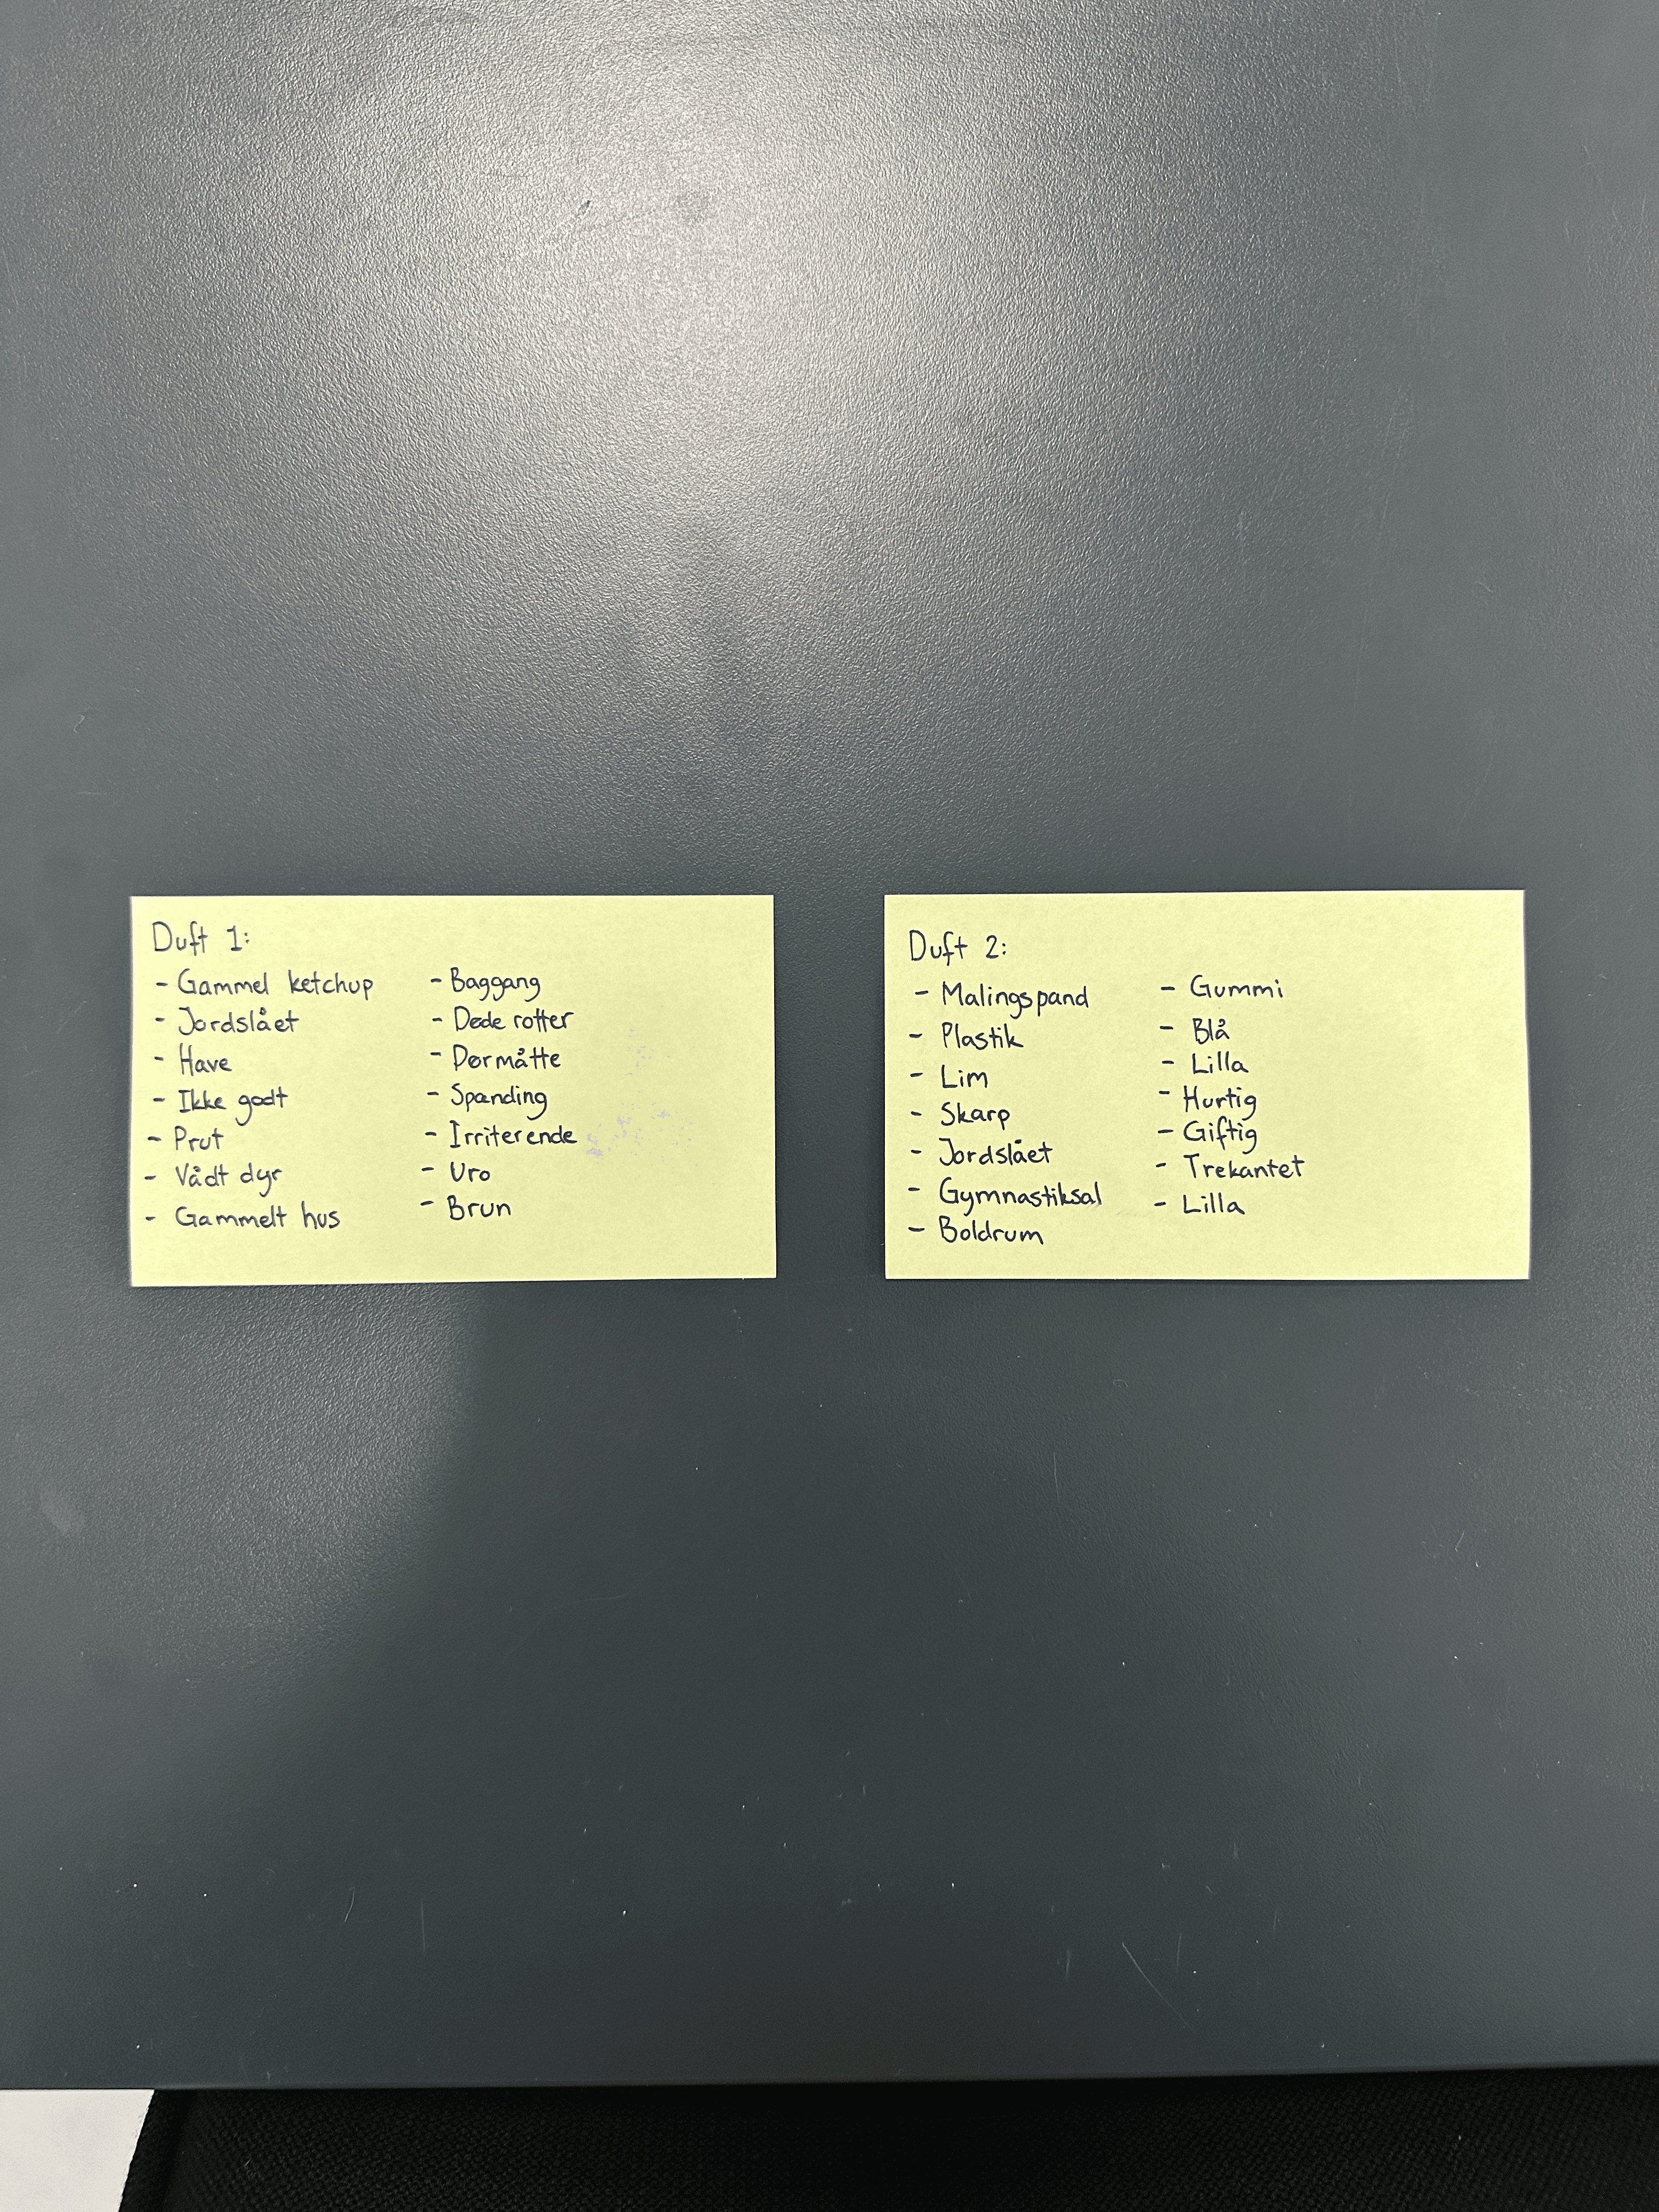 Duft 1:
- Gammel ketchup
- Jordslået
- Have
- Ikke godt
- Prut
- Vådt dyr
- Gammelt hus
- Baggang
- Døde rotter
- Dørmåtte
- Spænding
- Irriterende
- Uro
- Brun
Duft 2:
- Malingspand
- Plastik
- Lim
- Skarp
- Jordslået
- Gymnastiksal
- Boldrum
- Gummi
- Blå
- Lilla
- Hurtig
- Giftig
- Trekantet
- Lilla